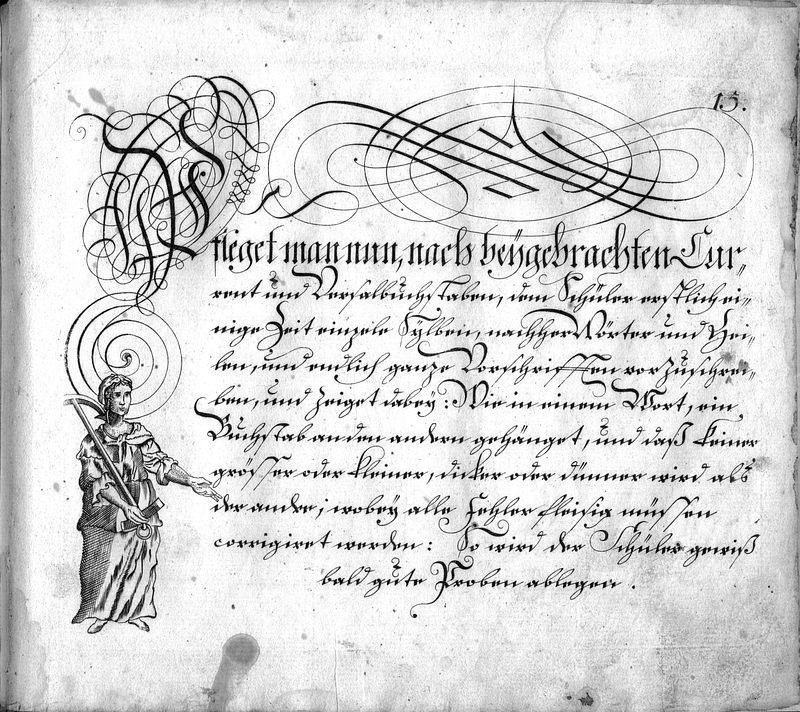 13.
Pfleget man nun, nach beÿgebrachten Cur-
rent und Versalbuchstaben, dem Schüler erstlich ei-
nige Zeit einzele Sylben, nachher Wörter und Zei-
len, und endlich ganze Vorschrifften vor zu schrei-
ben, und zeiget dabeÿ: Wie in einem Wort, ein
Buchstab an den andern gehänget, und daß keiner
grösser oder kleiner, dicker oder dünner wird als
der andre; wobeÿ alle Fehler fleisig müssen
corrigiret werden: So wird der Schüler gewiß
bald gute Proben ablegen.